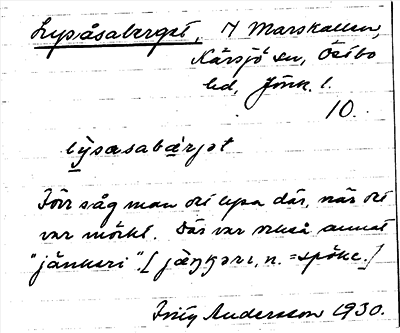 Lysåsaberget, N Marskallen,
Kärsjö sn, Östbo
hd, Jönk. l.
10.
lỳsasabärjət
Förr såg man det lysa där, när det
var mörkt. Där var också annat
"jänkeri". [jäŋkəri, n. = spöke.]
Fritz Andersson 1930.